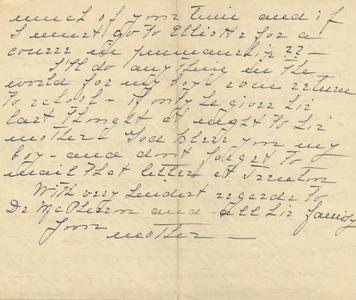 much of your time and if
I must go to Elliott's for a
course in penmanship ?? —
I'll do anything in the
world for my boy's sure return
to — if only he gives his
last thought at night to his
mother. God bless you my
boy — and don't forget to
mail that letter at Trenton
With very kindest regards to
Dr McPherson and — all his family
Your
mother —